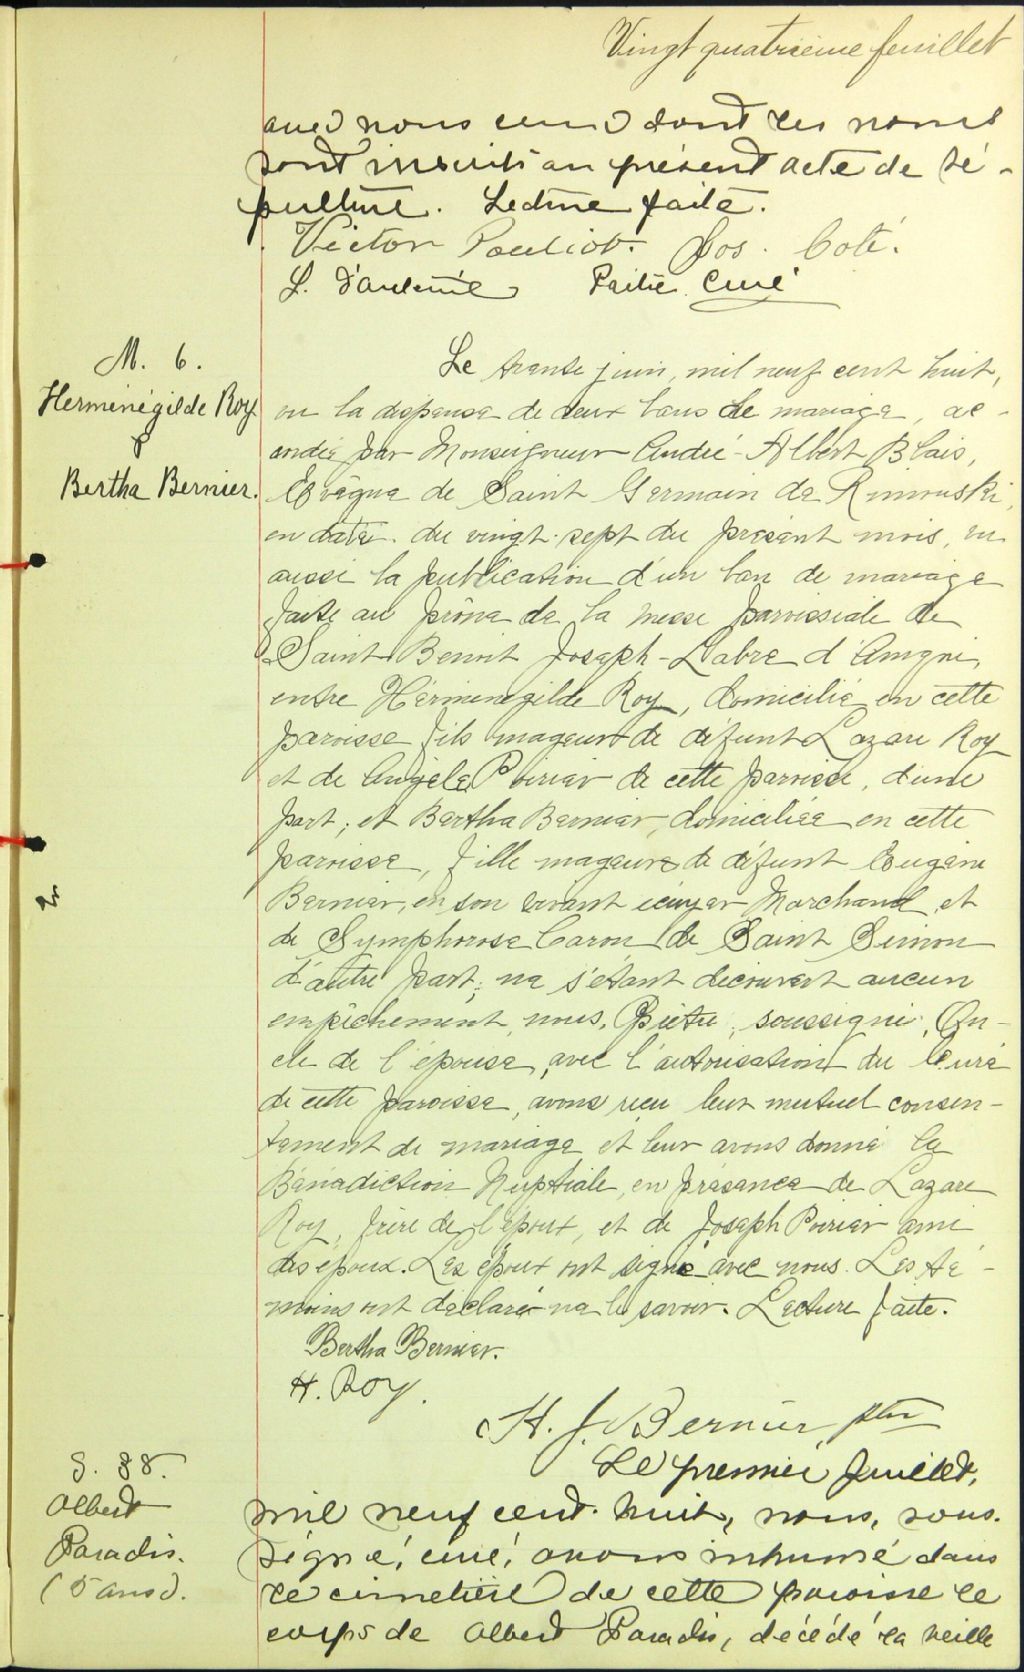 Vingt quatrième feuillet
avec nous ceux dont les noms
sont inscrits au présent acte de sé-
pulture. Lecture faite.
Victor Pouliot. Jos. Coté.
L. D'auteuil Prêtre Curé
M. 6.
Herménégilde Roy
&
Bertha Bernier.
Le trente juin, mil neuf cent huit,
vu la dispense de deux bans de mariage, ac-
cordée par Monseigneur André-Albert Blais,
Evêque de Saint Germain de Rimouski,
en date du vingt-sept du présent mois, vu
aussi la publication d'un ban de mariage
faite au prône de la messe paroissiale de
Saint Benoit Joseph-Labre d'Amqui,
entre Hérménégilde Roy, domicilié en cette
paroisse fils mageur de défunt Lazare Roy
et de Angèle Poirier de cette paroisse, d'une
part; et Bertha Bernier, domiciliée en cette
paroisse, fille mageure de défunt Eugène
Bernier, en son vivant écuyer Marchand, et
de Symphorose Caron de Saint Simon
d'autre part; ne s'étant découvert aucun
empêchement, nous, Prêtre, soussigné, On-
cle de l'épouse, avec l'autorisation du Curé
de cette paroisse, avons reçu leur mutuel consen-
tement de mariage et leur avons donné la
Bénédiction Nuptiale, en présence de Lazare
Roy, frère de l'époux, et de Joseph Poirier ami
des époux. Les époux ont signé avec nous. Les té-
moins ont déclaré ne le savoir. Lecture faite.
Bertha Bernier.
H. Roy.
H. J. Bernier ptre
S. 38.
Albert
Paradis.
(5 ans).
Le premier Juillet,
mil neuf cent huit, nous, sous-
signé, curé, avons inhumé dans
le cimetière de cette paroisse le
corps de Albert Paradis, décédé la veille